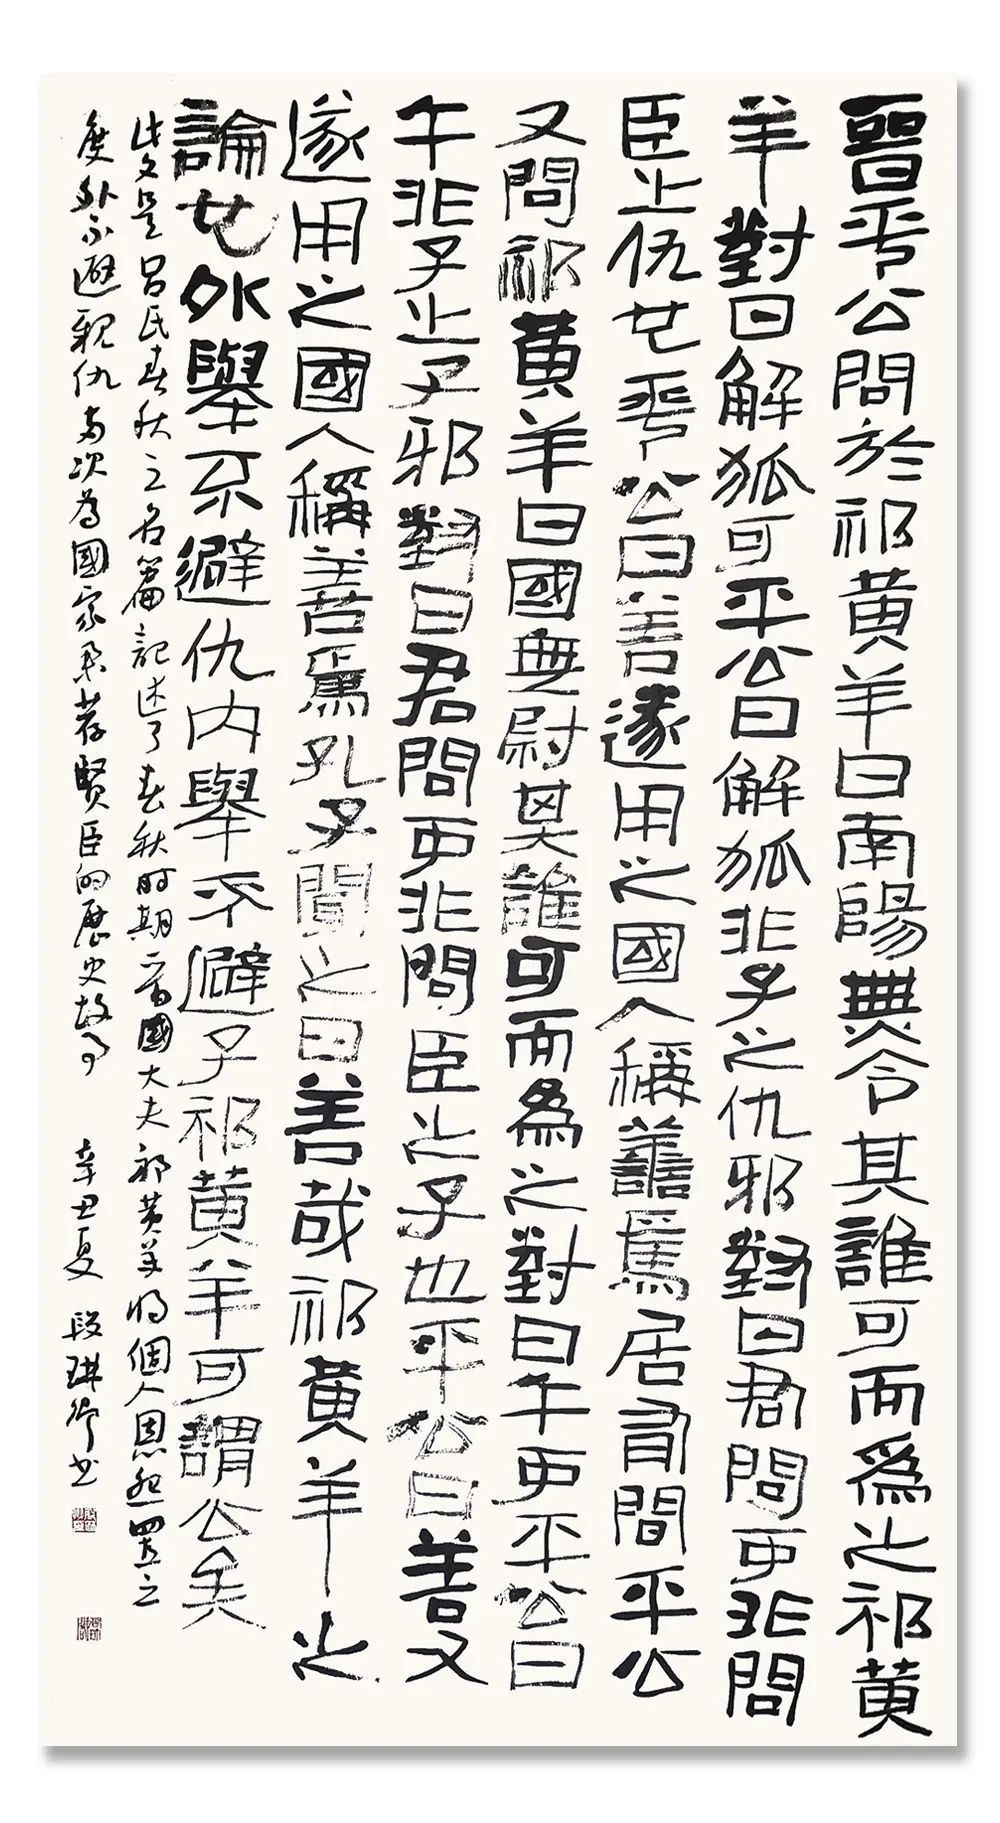 晉平公問於祁黃羊曰南陽無令其誰可而為之祁黃
羊對曰解狐可平公曰解狐非子之仇邪對曰君問可非問
臣之仇也平公曰善遂用之國人稱善焉居有間平公
又問祁黃羊曰國無尉其誰可而為之對曰午可平公曰
午非子之子邪對曰君問可非問臣之子也平公曰善又
遂用之國人稱善焉孔子聞之曰善哉祁黃羊之
論也外舉不避仇內舉不避子祁黃羊可謂公矣
此文是呂氏春秋之名篇記述了春秋时期晉國大夫祁黃羊將個人恩怨置之
度外不避親仇兩次為國家舉荐賢臣的歷史故事 辛丑夏 段琪書